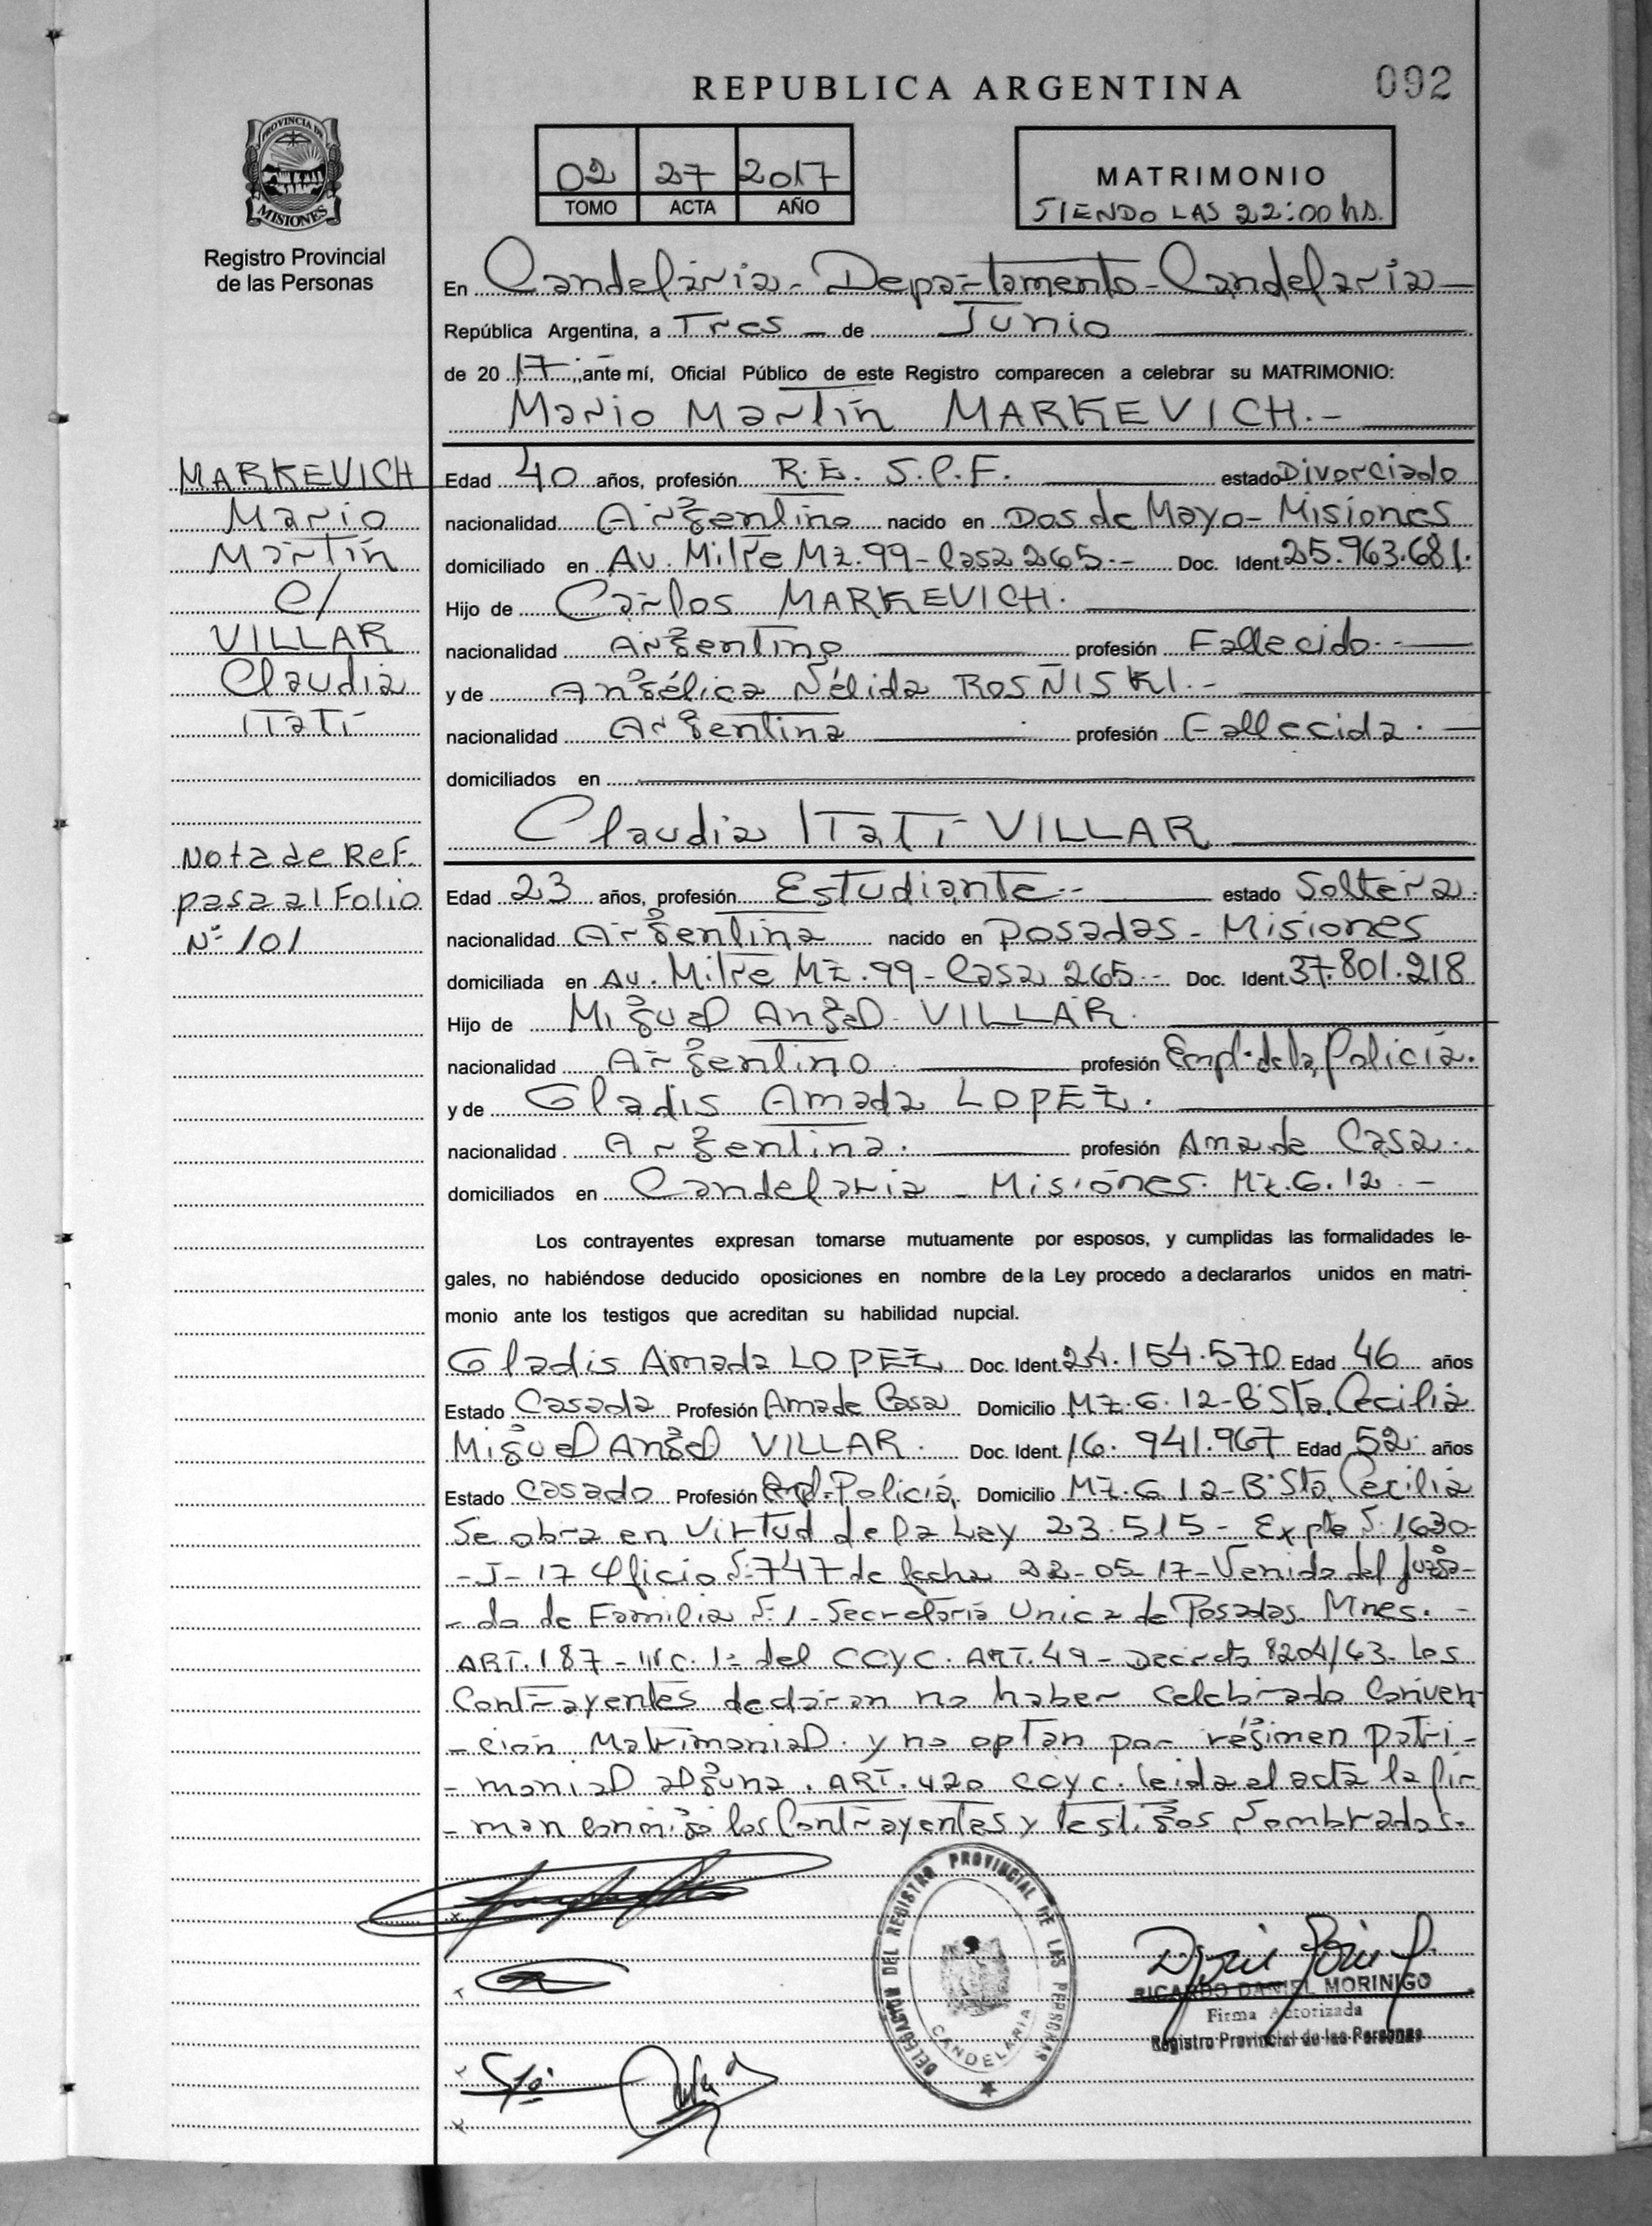 REPUBLICA ARGENTINA 092
PROVINCIA DE
MISIONES
Registro Provincial
de las Personas
02 27 2017
TOMO ACTA AÑO
MATRIMONIO
SIENDO LAS 22:00 hs.
En Candelaria - Departamento - Candelaria
República Argentina, a Tres de Junio
de 20 17, ante mí, Oficial Público de este Registro comparecen a celebrar su MATRIMONIO:
Mario Martín MARKEVICH.-
MARKEVICH
Mario
Martín
c/
VILLAR
Claudia
Itatí
Nota de Ref.
pasa al Folio
Nº 101
Edad 40 años, profesión R.E. S.P.F. estado Divorciado
nacionalidad Argentino nacido en Dos de Mayo - Misiones
domiciliado en Av. Mitre Mz. 99 - Casa 265.- Doc. Ident. 25.963.681.
Hijo de Carlos MARKEVICH.
nacionalidad Argentino profesión Fallecido.-
y de Angélica Nélida ROSÑISKI.-
nacionalidad Argentina profesión Fallecida.-
domiciliados en
Claudia Itatí VILLAR
Edad 23 años, profesión Estudiante.- estado Soltera.
nacionalidad Argentina nacido en Posadas - Misiones
domiciliada en Av. Mitre Mz. 99 - Casa 265.- Doc. Ident. 37.801.218
Hijo de Miguel Angel VILLAR.
nacionalidad Argentino profesión Empl. de la Policía.
y de Gladis Amada LOPEZ.
nacionalidad Argentina. profesión Ama de Casa.
domiciliados en Candelaria - Misiones. Mz. G. 12.-
Los contrayentes expresan tomarse mutuamente por esposos, y cumplidas las formalidades le-
gales, no habiéndose deducido oposiciones en nombre de la Ley procedo a declararlos unidos en matri-
monio ante los testigos que acreditan su habilidad nupcial.
Gladis Amada LOPEZ Doc. Ident. 24.154.570 Edad 46 años
Estado Casada Profesión Ama de Casa Domicilio Mz. G. 12 - Bº Sta. Cecilia
Miguel Angel VILLAR. Doc. Ident. 16.941.967 Edad 52 años
Estado Casado Profesión Policía Domicilio Mz. G 12 - Bº Sta. Cecilia
Se obra en Virtud de la Ley 23.515 - Expte Nº 1630-
-J-17 Oficio Nº 747 de fecha 22-05-17 - Venido del Juzga-
-do de Familia Nº 1 - Secretaría Unica de Posadas. Mnes.-
ART. 187 - INC. 1º del CCYC. ART. 49 - Decreto 8204/63. Los
Contrayentes declaran no haber celebrado Conven-
-ción Matrimonial. y no optan por régimen patri-
-monial alguna. ART. 420 CCYC. leida el acta la fir-
-man conmigo los Contrayentes y testigos nombrados.
DELEGACION DEL REGISTRO PROVINCIAL DE LAS PERSONAS
CANDELARIA
RICARDO DANIEL MORINIGO
Firma Autorizada
Registro Provincial de las Personas